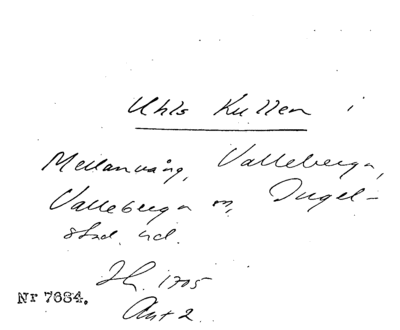 Uhls Kullen i
Mellanvång, Valleberga,
Valleberga sn, Ingel-
stad hd.
Jh. 1705
Akt 2
Nr 7684.